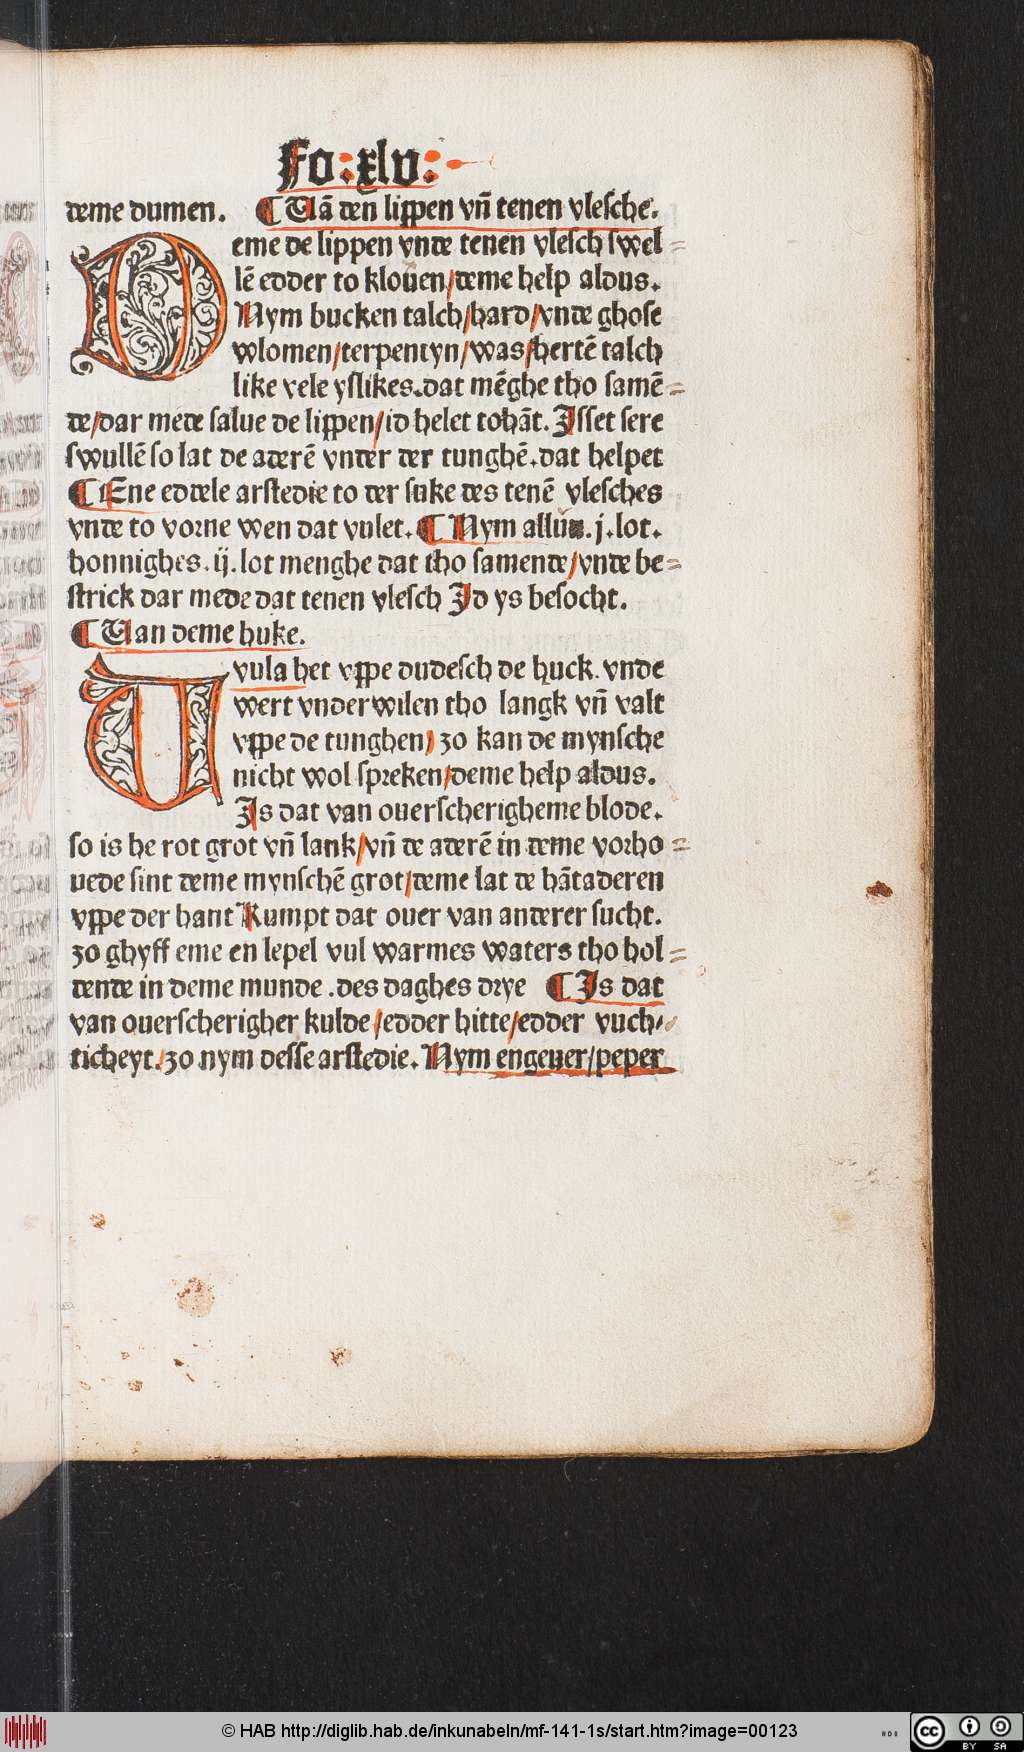 Fo: xlv:
deme dumen. ¶ Uā den lippen vñ tenen vlesche.
Deme de lippen vnde tenen vlesch swel=
lē edder to klouen/deme help aldus.
Nym bucken talch/hard/vnde ghose
vlomen/terpentyn/was/hertē talch
like vele yslikes.dat mēghe tho samē=
de/dar mede salue de lippen/id helet tohāt. Isset sere
swullē so lat de aderē vnder der tunghē.dat helpet
¶ Ene eddele arstedie to der suke des tenē vlesches
vnde to vorne wen dat vulet. ¶ Nym allūn.j.lot.
honnighes.ij.lot menghe dat tho samende/vnde be=
strick dar mede dat tenen vlesch Id ys besocht.
¶ Uan deme huke.
Uvula het vppe dudesch de huck. vnde
wert vnderwilen tho langk vñ valt
vppe de tunghen/ zo kan de mynsche
nicht wol spreken/deme help aldus.
Is dat van ouerscherigheme blode.
so is he rot grot vñ lank/vñ de aderē in deme vorho=
uede sint deme mynschē grot/deme lat de hātaderen
vppe der hant Kumpt dat ouer van anderer sucht.
zo ghyff eme en lepel vul warmes waters tho hol=
dende in deme munde .des daghes drye ¶ Is dat
van ouerscherigher kulde/edder hitte/edder vuch/
ticheyt./zo nym desse arstedie. Nym engeuer/peper
© HAB http://diglib.hab.de/inkunabeln/mf-141-1s/start.htm?image=00123
cc BY SA